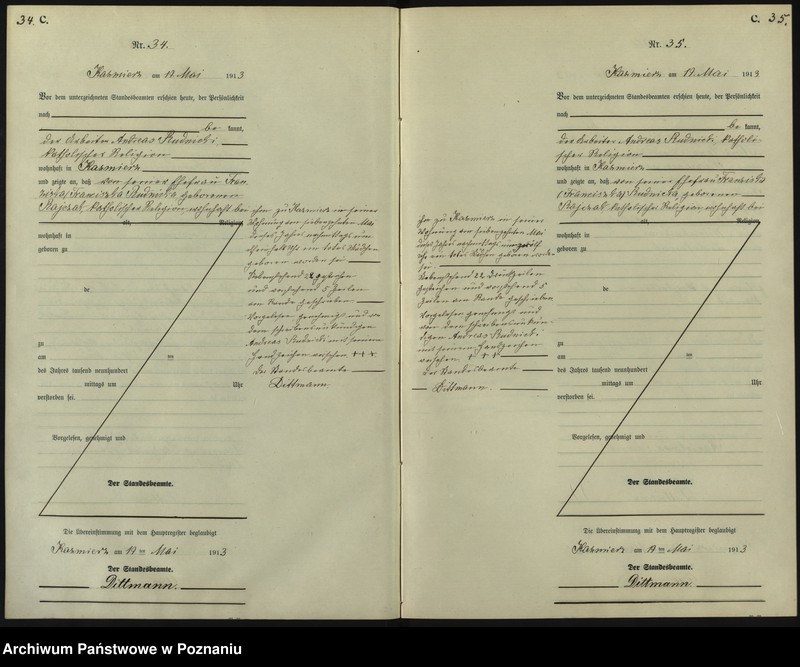 34. C.
Nr. 34.
Kazmierz am 19. Mai 1913
Vor dem unterzeichneten Standesbeamten erschien heute, der Persönlichkeit
nach
be kannt,
der Arbeiter Andreas Rudnicki,
katholischer Religion
wohnhaft in Kazmierz
und zeigte an, daß von seiner Ehefrau Fran-
ziska Rudnicka geborenen
katholischer Religion wohnhaft bei
alt, Religion,
wohnhaft in
geboren zu
de
zu
am ten
des Jahres tausend neunhundert
mittags um Uhr
verstorben sei.
Vorgelesen, genehmigt und
Der Standesbeamte.
ihm zu Kazmierz in seiner
Wohnung am siebenzehnten Mai
dieses Jahres vormittags um
Uhr ein totes Mädchen
geboren worden sei
Vorstehend 22
und vorstehend 5 Zeilen
am Rande geschrieben.
Vorgelesen genehmigt und von
dem schreibensunkundigen
Andreas Rudnicki mit seinem
Handzeichen versehen + + +
Der Standesbeamte
Dittmann.
Die Übereinstimmung mit dem Hauptregister beglaubigt
Kazmierz am 19 ten Mai 1913
Der Standesbeamte.
Dittmann.
C. 35.
Nr. 35.
Kazmierz am 19. Mai 1913
Vor dem unterzeichneten Standesbeamten erschien heute, der Persönlichkeit
nach
be kannt,
der Arbeiter Andreas Rudnicki, katholi-
scher Religion
wohnhaft in Kazmierz
und zeigte an, daß von seiner Ehefrau Franziska
Rudnicka geborenen
katholischer Religion wohnhaft bei
alt, Religion,
wohnhaft in
geboren zu
de
zu
am ten
des Jahres tausend neunhundert
mittags um Uhr
verstorben sei.
Vorgelesen, genehmigt und
Der Standesbeamte.
ihm zu Kazmierz in seiner
Wohnung am siebenzehnten Mai
dieses Jahres vormittags
Uhr ein totes Mädchen geboren worden
sei
Vorstehend 22 Druckzeilen
gestrichen und vorstehend 5
Zeilen am Rande geschrieben
Vorgelesen genehmigt und
von dem schreibensunkun-
digen Andreas Rudnicki
mit seinem Handzeichen
versehen + + +
Der Standesbeamte
Dittmann.
Die Übereinstimmung mit dem Hauptregister beglaubigt
Kazmierz am 19 ten Mai 1913
Der Standesbeamte.
Dittmann.
Archiwum Państwowe w Poznaniu